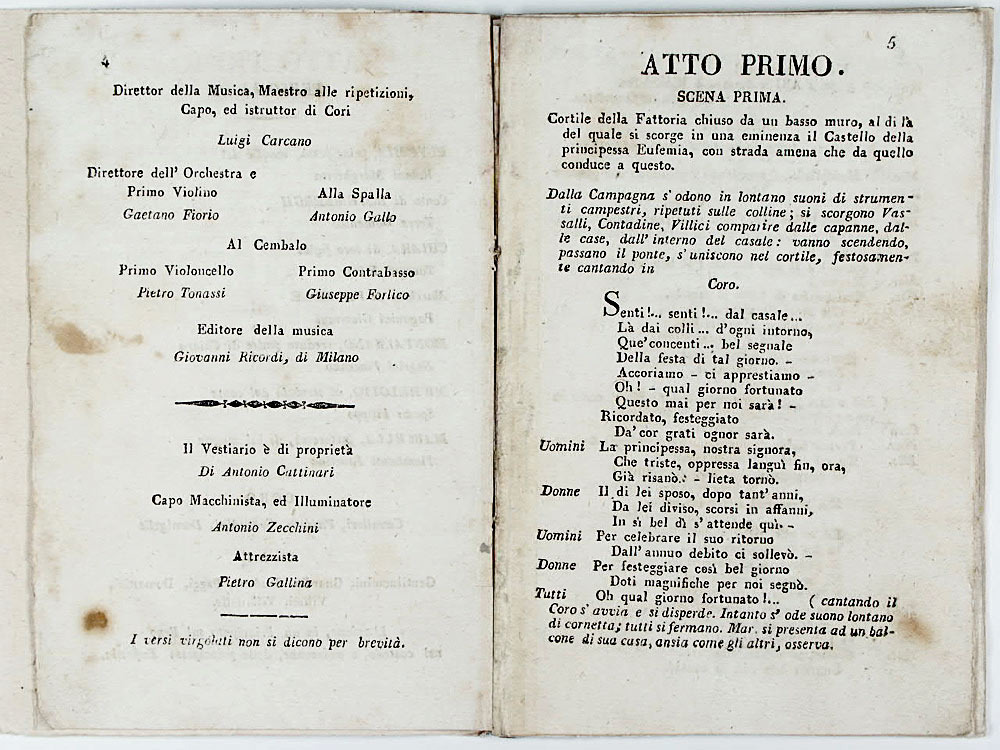 4
Direttor della Musica, Maestro alle ripetizioni,
Capo, ed istruttor di Cori
Luigi Carcano
Direttore dell' Orchestra e
Primo Violino
Alla Spalla
Gaetano Fiorio
Antonio Gallo
Al Cembalo
Primo Violoncello
Primo Contrabasso
Pietro Tonassi
Giuseppe Forlico
Editore della musica
Giovanni Ricordi, di Milano
Il Vestiario è di proprietà
Di Antonio Cattinari
Capo Macchinista, ed Illuminatore
Antonio Zecchini
Attrezzista
Pietro Gallina
I versi virgolati non si dicono per brevità.
5
ATTO PRIMO.
SCENA PRIMA.
Cortile della Fattoria chiuso da un basso muro, al di là
del quale si scorge in una eminenza il Castello della
principessa Eufemia, con strada amena che da quello
conduce a questo.
Dalla Campagna s' odono in lontano suoni di strumen-
ti campestri, ripetuti sulle colline; si scorgono Vas-
salli, Contadine, Villici comparire dalle capanne, dal-
le case, dall' interno del casale: vanno scendendo,
passano il ponte, s' uniscono nel cortile, festosamen-
te cantando in
Coro.
Senti!... senti!... dal casale...
Là dai colli... d'ogni intorno,
Que'concenti... bel segnale
Della festa di tal giorno. -
Accoriamo - ci apprestiamo -
Oh! - qual giorno fortunato
Questo mai per noi sarà! -
Ricordato, festeggiato
Da'cor grati ognor sarà.
Uomini La principessa, nostra signora,
Che triste, oppressa languì fin, ora,
Già risanò: - lieta tornò.
Donne Il di lei sposo, dopo tant' anni,
Da lei diviso, scorsi in affanni,
In sì bel dì s' attende quì. -
Uomini Per celebrare il suo ritorno
Dall' annuo debito ci sollevò. -
Donne Per festeggiare così bel giorno
Doti magnifiche per noi segnò.
Tutti Oh qual giorno fortunato!... (cantando il
Coro s' avvia e si disperde. Intanto s' ode suono lontano
di cornetta; tutti si fermano. Mar. si presenta ad un bal-
cone di sua casa, ansia come gli altri, osserva.